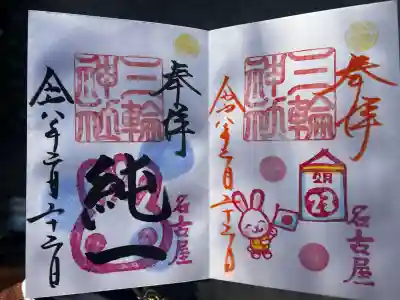 奉拝
三輪
神社
令八年二月二十三日
2月
23
名古屋
奉拝
三輪
神社
純一
令八年二月二十二日
名古屋